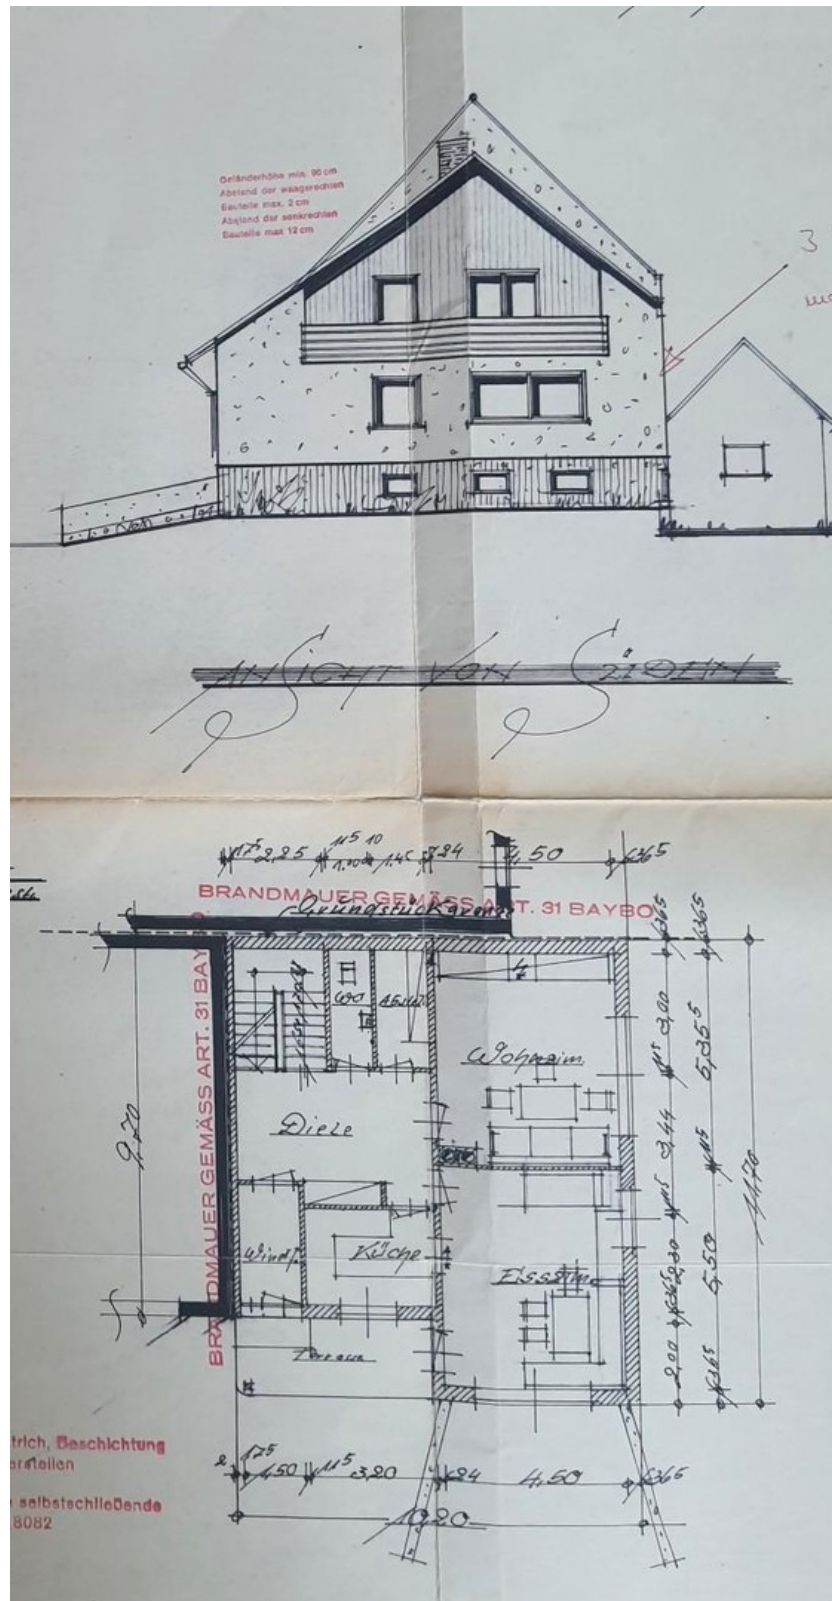 Geländerhöhe min. 90 cm
Abstand der waagerechten
Bauteile max. 2 cm
Abstand der senkrechten
Bauteile max 12 cm
3
ANSICHT VON SÜDEN
17⁵ 2,25 11⁵ 1.00 10 1.45 24 4,50 36⁵
BRANDMAUER GEMÄSS ART. 31 BAYBO
Grundstücksgrenze
BRANDMAUER GEMÄSS ART. 31 BAYBO
WC
Abstell.
Wohnzim.
Diele
Windf.
Küche
Esszim.
Terrasse
9,70
36⁵ 3,00 11⁵ 3,44 11⁵ 2,30 36⁵ 2,00
36⁵ 5,35⁵ 11⁵ 5,50 36⁵
11,70
trich, Beschichtung
erstellen
selbstschließende
8082
2 17⁵ 1,50 11⁵ 3,20 24 4,50 36⁵
10,20